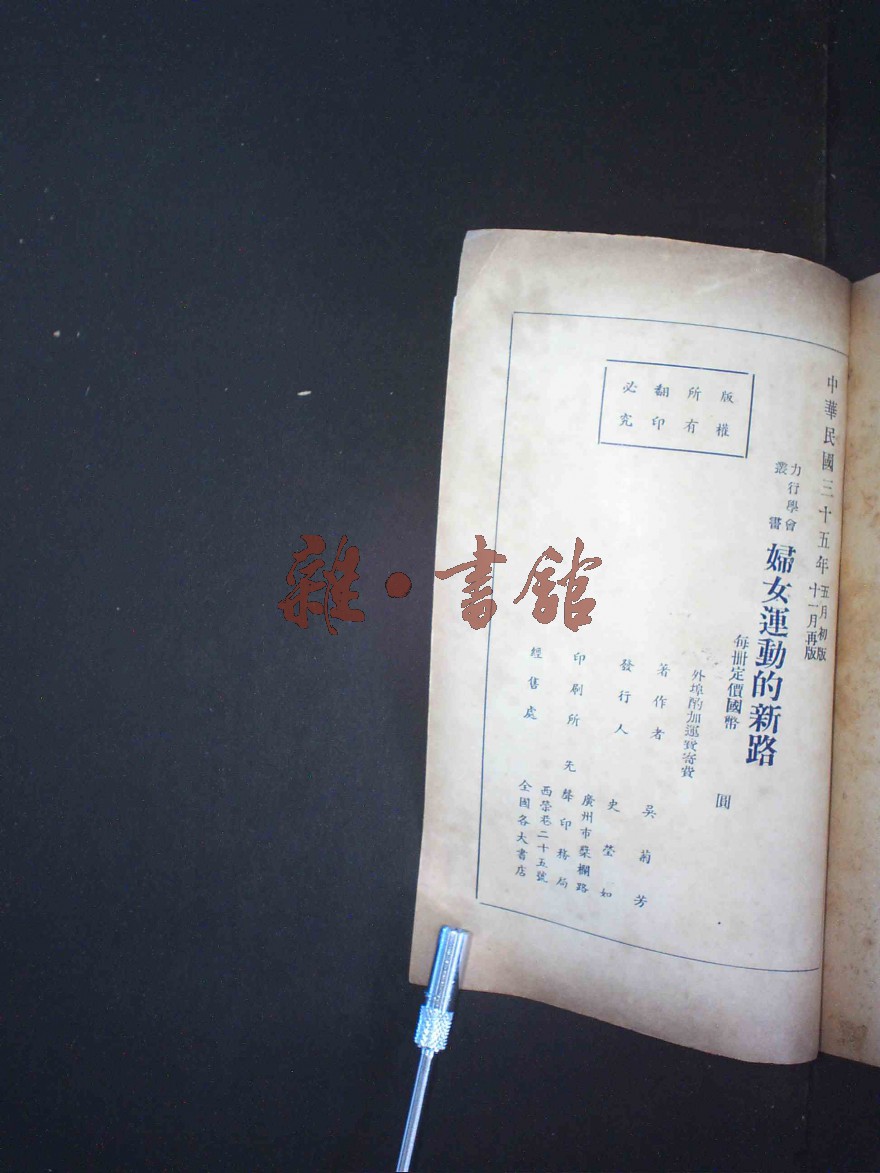 中華民國三十五年
五月初版
十一月再版
力行學會
叢書
婦女運動的新路
每冊定價國幣 圓
外埠酌加運致寄費
版權
所有
翻印
必究
著作者 吳菊芳
發行人 史瑩如
印刷所 先聲印務局
廣州市槳欄路
西榮巷二十五號
經售處 全國各大書店
雜·書館